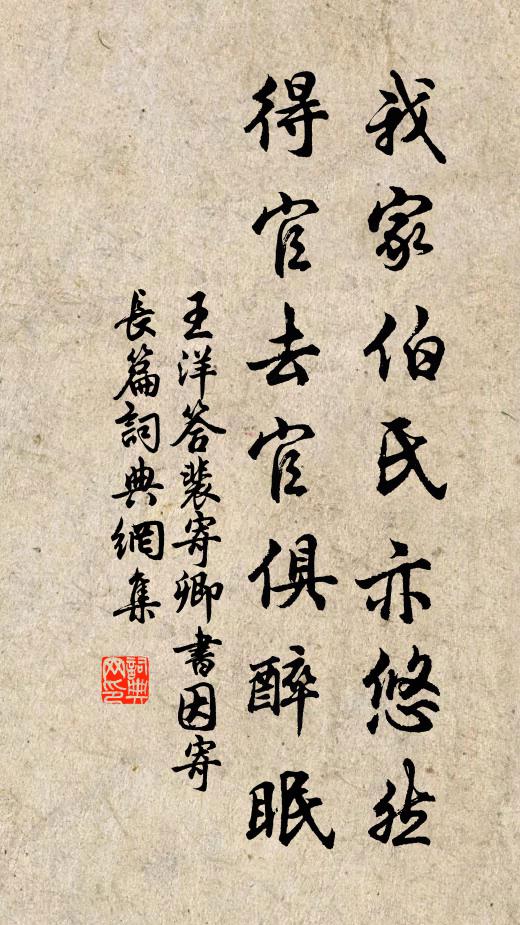 我家伯氏亦悠然
得官去官俱醉眠
王洋答裴寄卿書因寄
長篇詞典網集
詞典网印